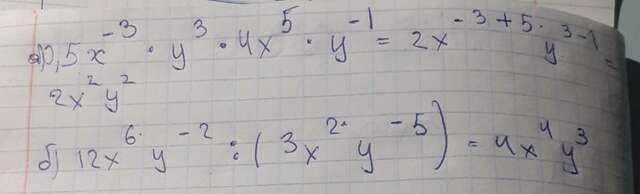 а) 0,5x⁻³ · y³ · 4x⁵ · y⁻¹ = 2x⁻³⁺⁵ · y³⁻¹ =
2x²y²
б) 12x⁶ · y⁻² : (3x² · y⁻⁵) = 4x⁴y³